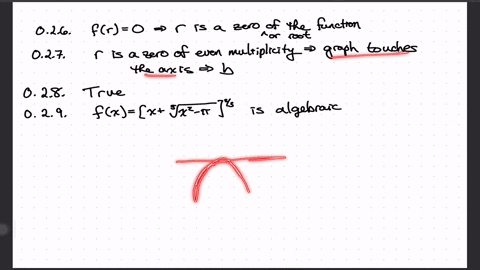 0.2.6. f(r)=0 ⇒ r is a zero of the function
^or root
0.2.7. r is a zero of even multiplicity ⇒ graph touches
the axis ⇒ b
0.2.8. True
0.2.9. f(x)=[x+∛(x²-π)]^(2/3) is algebraic